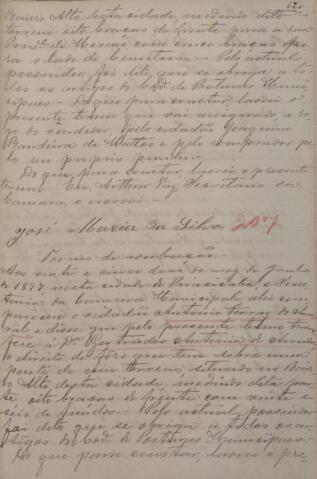 Bairro Alto desta cidade, medindo dito
terreno oito braças de frente para a rua
com cinco braças
para o lado do Cemiterio. Pelo actual
possuidor foi dito que se obriga a to-
dos os artigos do Cod. de Posturas Muni-
cipaes. Do que para constar, lavrei o
presente termo que vai assignado, a ro-
go do vendedor, pelo cidadão Joaquim
Bandeira de Mattos e pelo comprador pe-
lo seu proprio punho.
Do que, para constar, lavrei o presente
termo. Eu, Arthur Vaz, Secretario da
Camara, o escrevi.
José Maria da Silva 207
Termo de
Aos vinte e cinco dias do mez de Junho
de 1897 nesta cidade de Piracicaba, e Secre-
taria da Camara Municipal, ahi com-
pareceu o cidadão Antonio Ferraz do Ama-
ral e disse que pelo presente termo trans-
fere á D. Gertrudes Antonia de
o direito de fôro que tem sobre uma
parte de um terreno, situado no Bair-
ro Alto desta cidade medindo dita par-
te oito braças de frente com vinte e
seis de fundos. Pelo actual possuidor
foi dito que se obriga a todos os ar-
tigos do Cod. de Posturas Municipaes.
Do que para constar, lavrei o pre-